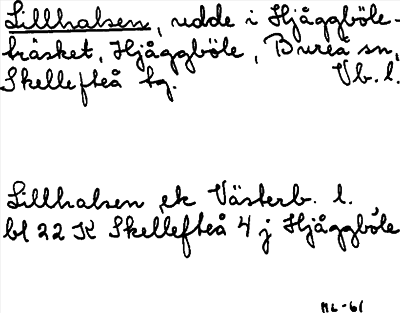 Lillhalsen, udde i Hjåggböle-
träsket, Hjåggböle, Bureå sn,
Skellefteå tg. Vb. l.
Lillhalsen ek Västerb. l.
bl 22 K Skellefteå 4 j Hjåggböle
ML-61